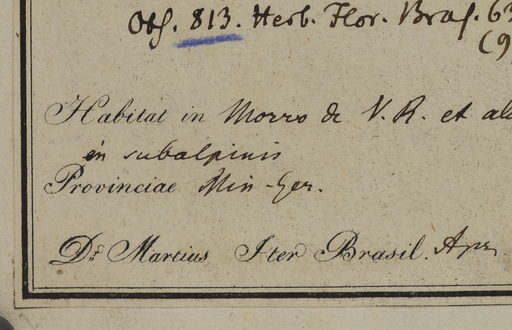 Obs. 813. Herb. Flor. Bras. 63
(9
Habitat in Morro de V. R. et
in subalpinis
Provinciae Min-Ger.
Dr. Martius Iter Brasil. Apr.